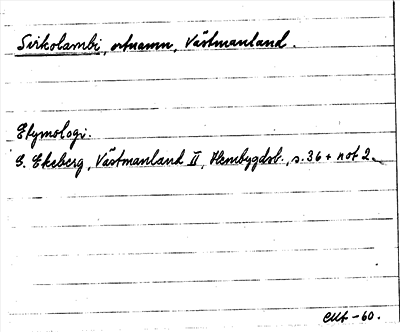 Sirkolambi, ortnamn, Västmanland.
Etymologi.
G. Ekeberg, Västmanland II, Hembygdsb., s. 36 + not 2.
-60.